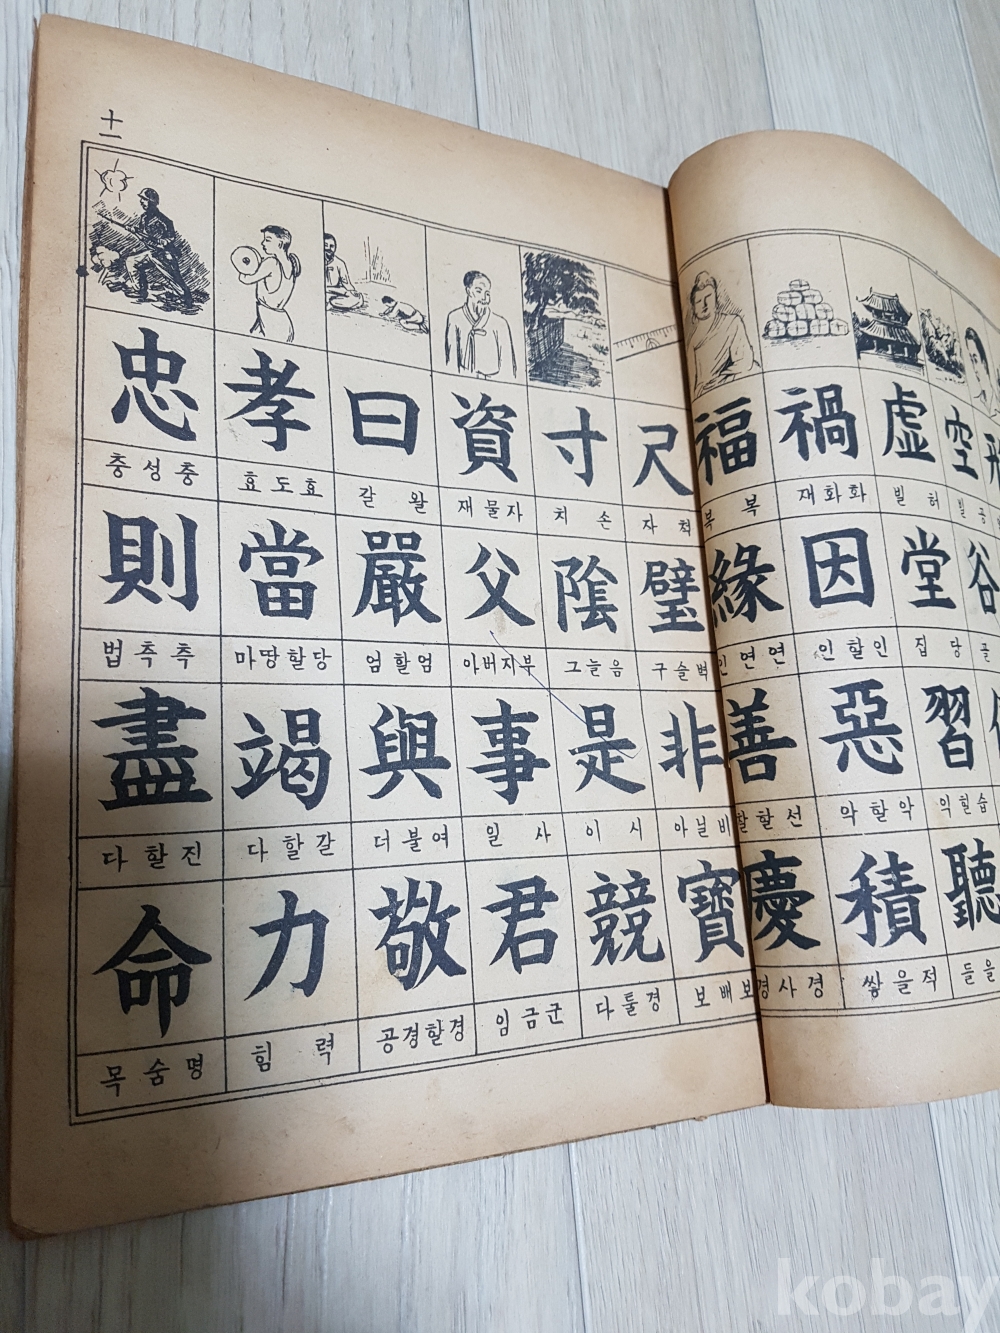 空
谷
虛
빌 허
堂
집 당
習
익힐습
聽
들을
禍
재화화
因
인할인
惡
악할악
積
쌓을적
福
복 복
緣
인연연
善
착할선
慶
경사경
十一
尺
자 척
璧
구슬벽
非
아닐비
寶
보배보
寸
치 손
陰
그늘음
是
이 시
競
다툴경
資
재물자
父
아버지부
事
일 사
君
임금군
曰
갈 왈
嚴
엄할엄
與
더불여
敬
공경할경
孝
효도효
當
마땅할당
竭
다할갈
力
힘 력
忠
충성충
則
법측측
盡
다할진
命
목숨명
kobay